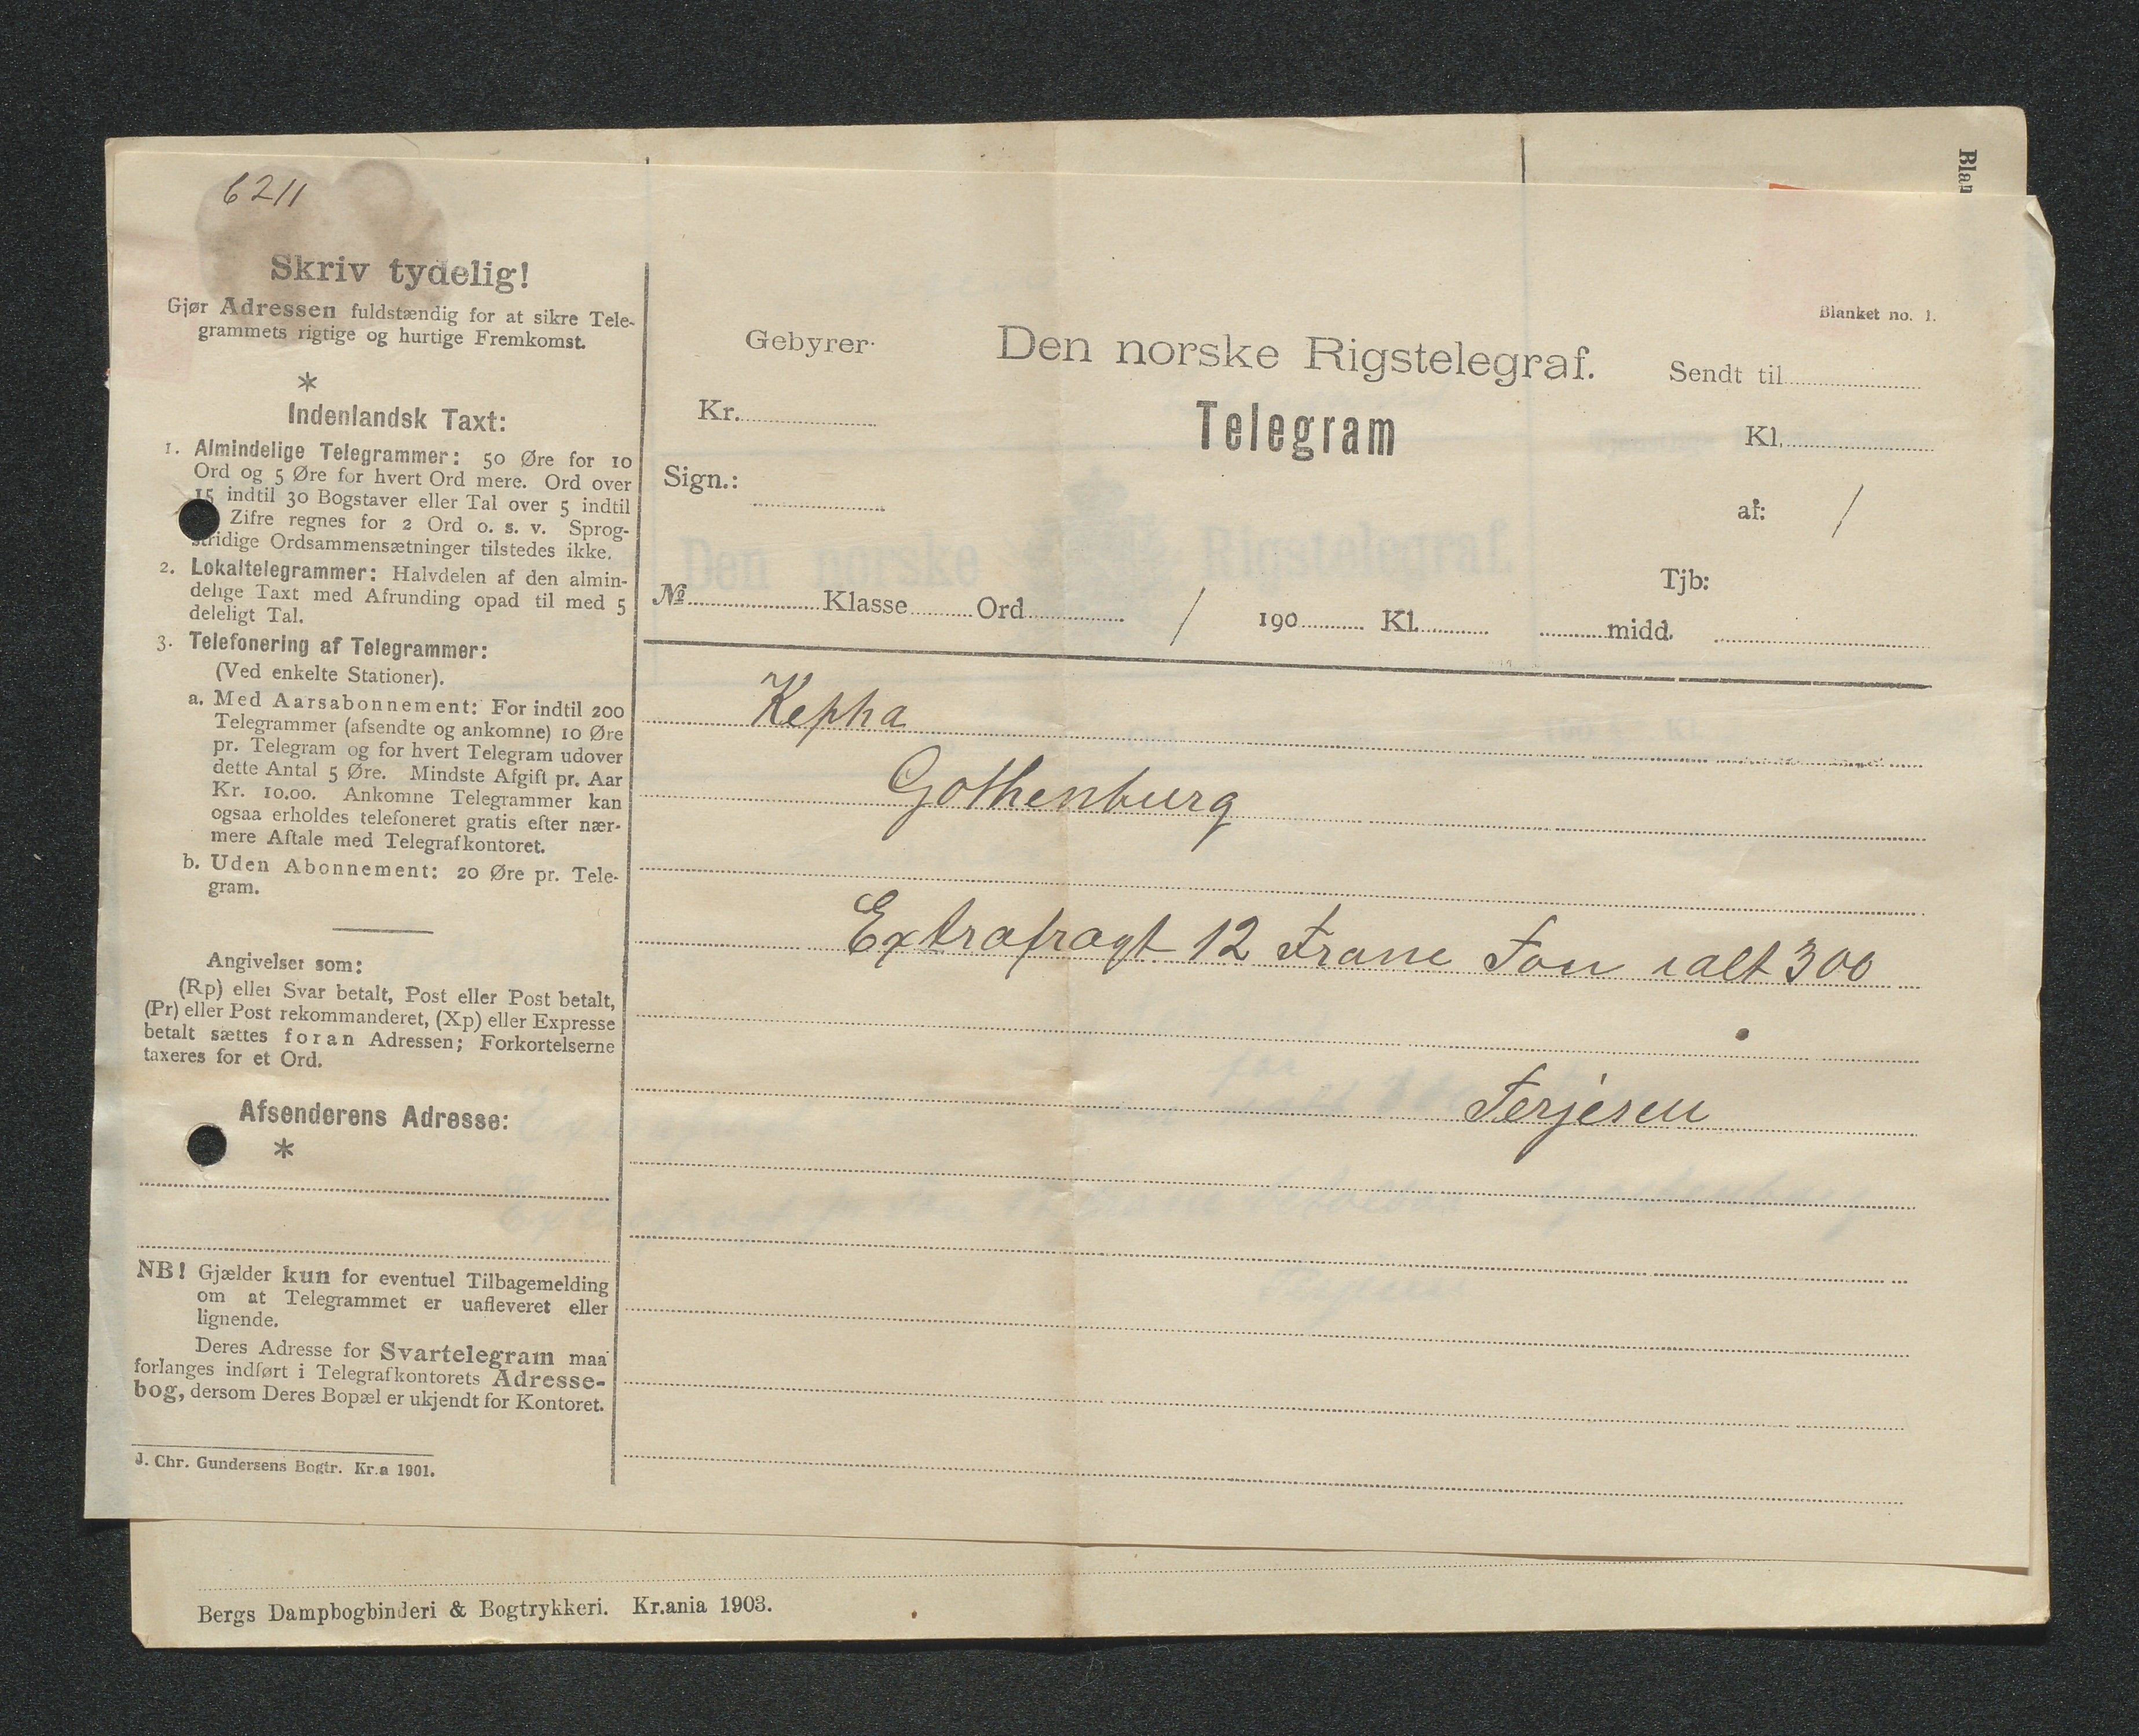 6211
Skriv tydelig!
Gjør Adressen fuldstændig for at sikre Tele-
grammets rigtige og hurtige Fremkomst.
*
Indenlandsk Taxt:
1. Almindelige Telegrammer: 50 Øre for 10
Ord og 5 Øre for hvert Ord mere. Ord over
15 indtil 30 Bogstaver eller Tal over 5 indtil
Zifre regnes for 2 Ord o. s. v. Sprog-
stridige Ordsammensætninger tilstedes ikke.
2. Lokaltelegrammer: Halvdelen af den almin-
delige Taxt med Afrunding opad til med 5
deleligt Tal.
3. Telefonering af Telegrammer:
(Ved enkelte Stationer).
a. Med Aarsabonnement: For indtil 200
Telegrammer (afsendte og ankomne) 10 Øre
pr. Telegram og for hvert Telegram udover
dette Antal 5 Øre. Mindste Afgift pr. Aar
Kr. 10.00. Ankomne Telegrammer kan
ogsaa erholdes telefoneret gratis efter nær-
mere Aftale med Telegrafkontoret.
b. Uden Abonnement: 20 Øre pr. Tele-
gram.
Angivelser som:
(Rp) eller Svar betalt, Post eller Post betalt,
(Pr) eller Post rekommanderet, (Xp) eller Expresse
betalt sættes foran Adressen; Forkortelserne
taxeres for et Ord.
Afsenderens Adresse:
*
NB! Gjælder kun for eventuel Tilbagemelding
om at Telegrammet er uafleveret eller
lignende.
Deres Adresse for Svartelegram maa
forlanges indført i Telegrafkontorets Adresse-
bog, dersom Deres Bopæl er ukjendt for Kontoret.
J. Chr. Gundersens Bogtr. Kr.a 1901.
Blanket no. 1.
Gebyrer
Den norske Rigstelegraf.
Sendt til
Kr.
Telegram
Kl.
Sign.:
af: /
Tjb:
№ Klasse Ord / 190 Kl. midd.
Kepha
Gothenburg
Extrafragt 12 Trane Ton ialt 300
Terjesen
Bergs Dampbogbinderi & Bogtrykkeri. Kr.ania 1903.
Blan